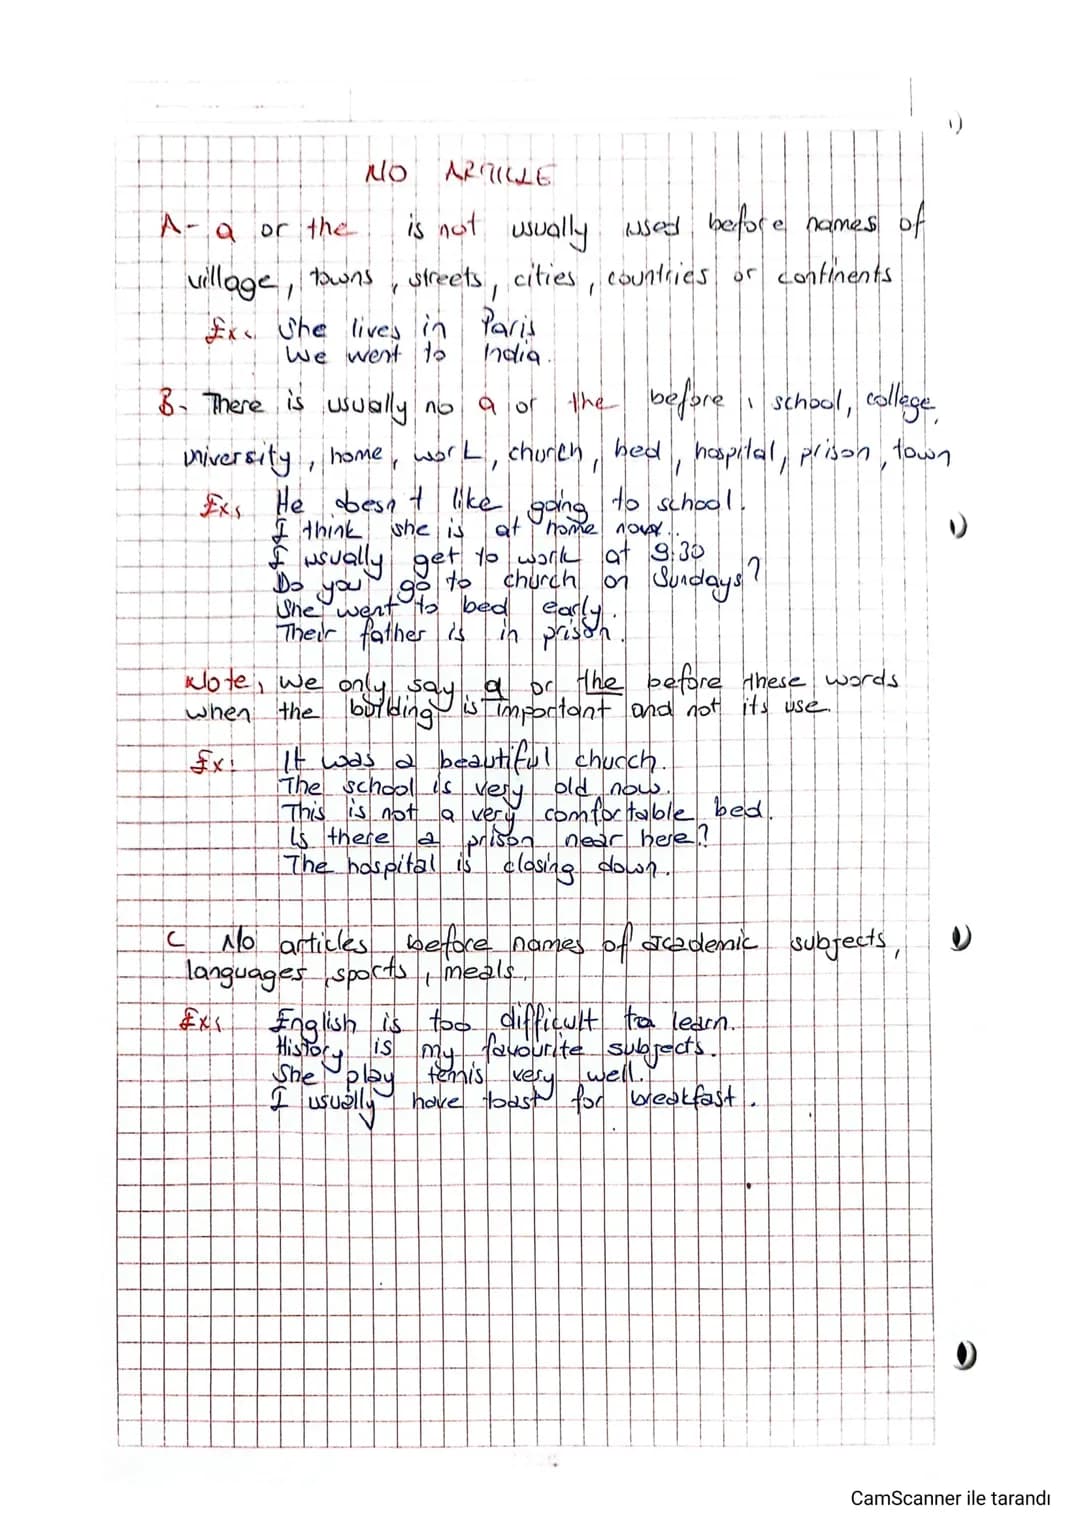 NO ARTICLE
A- a or the is not usually used before names of
village, towns, streets, cities, countries or continents
Ex: She lives in Paris
We went to India.
B- There is usually no a or the before, school, college,
university, home, work, church, bed, hospital, prison, town
Exs He doesn't like going to school.
I think she is at home now.
I usually get to work at 9:30
Do you go to church on Sundays?
She went to bed early.
Their father is in prison.
Note, we only say a or the before these words
when the building is important and not its use.
Ex: It was a beautiful church.
The school is very old now.
This is not a very comfortable bed.
Is there a prison near here?
The hospital is closing down.
C No articles before names of academic subjects,
languages, sports, meals.
Exs English is too difficult to learn.
History is my favourite subjects.
She play tennis very well.
I usually have toast for breakfast.
CamScanner ile tarandı